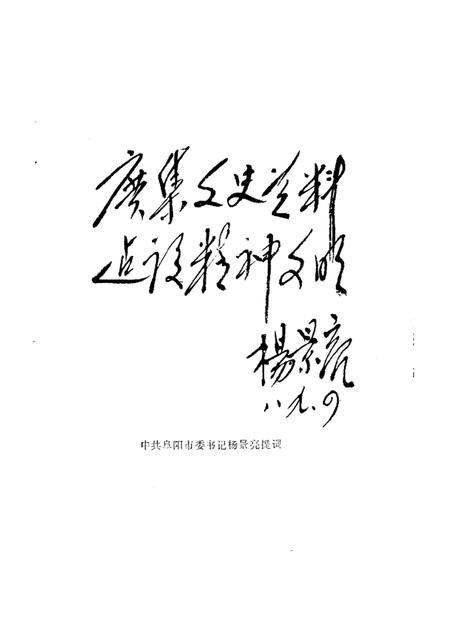 广集文史资料
建设精神文明
楊景亮
八九.9
中共阜阳市委书记杨景亮提词